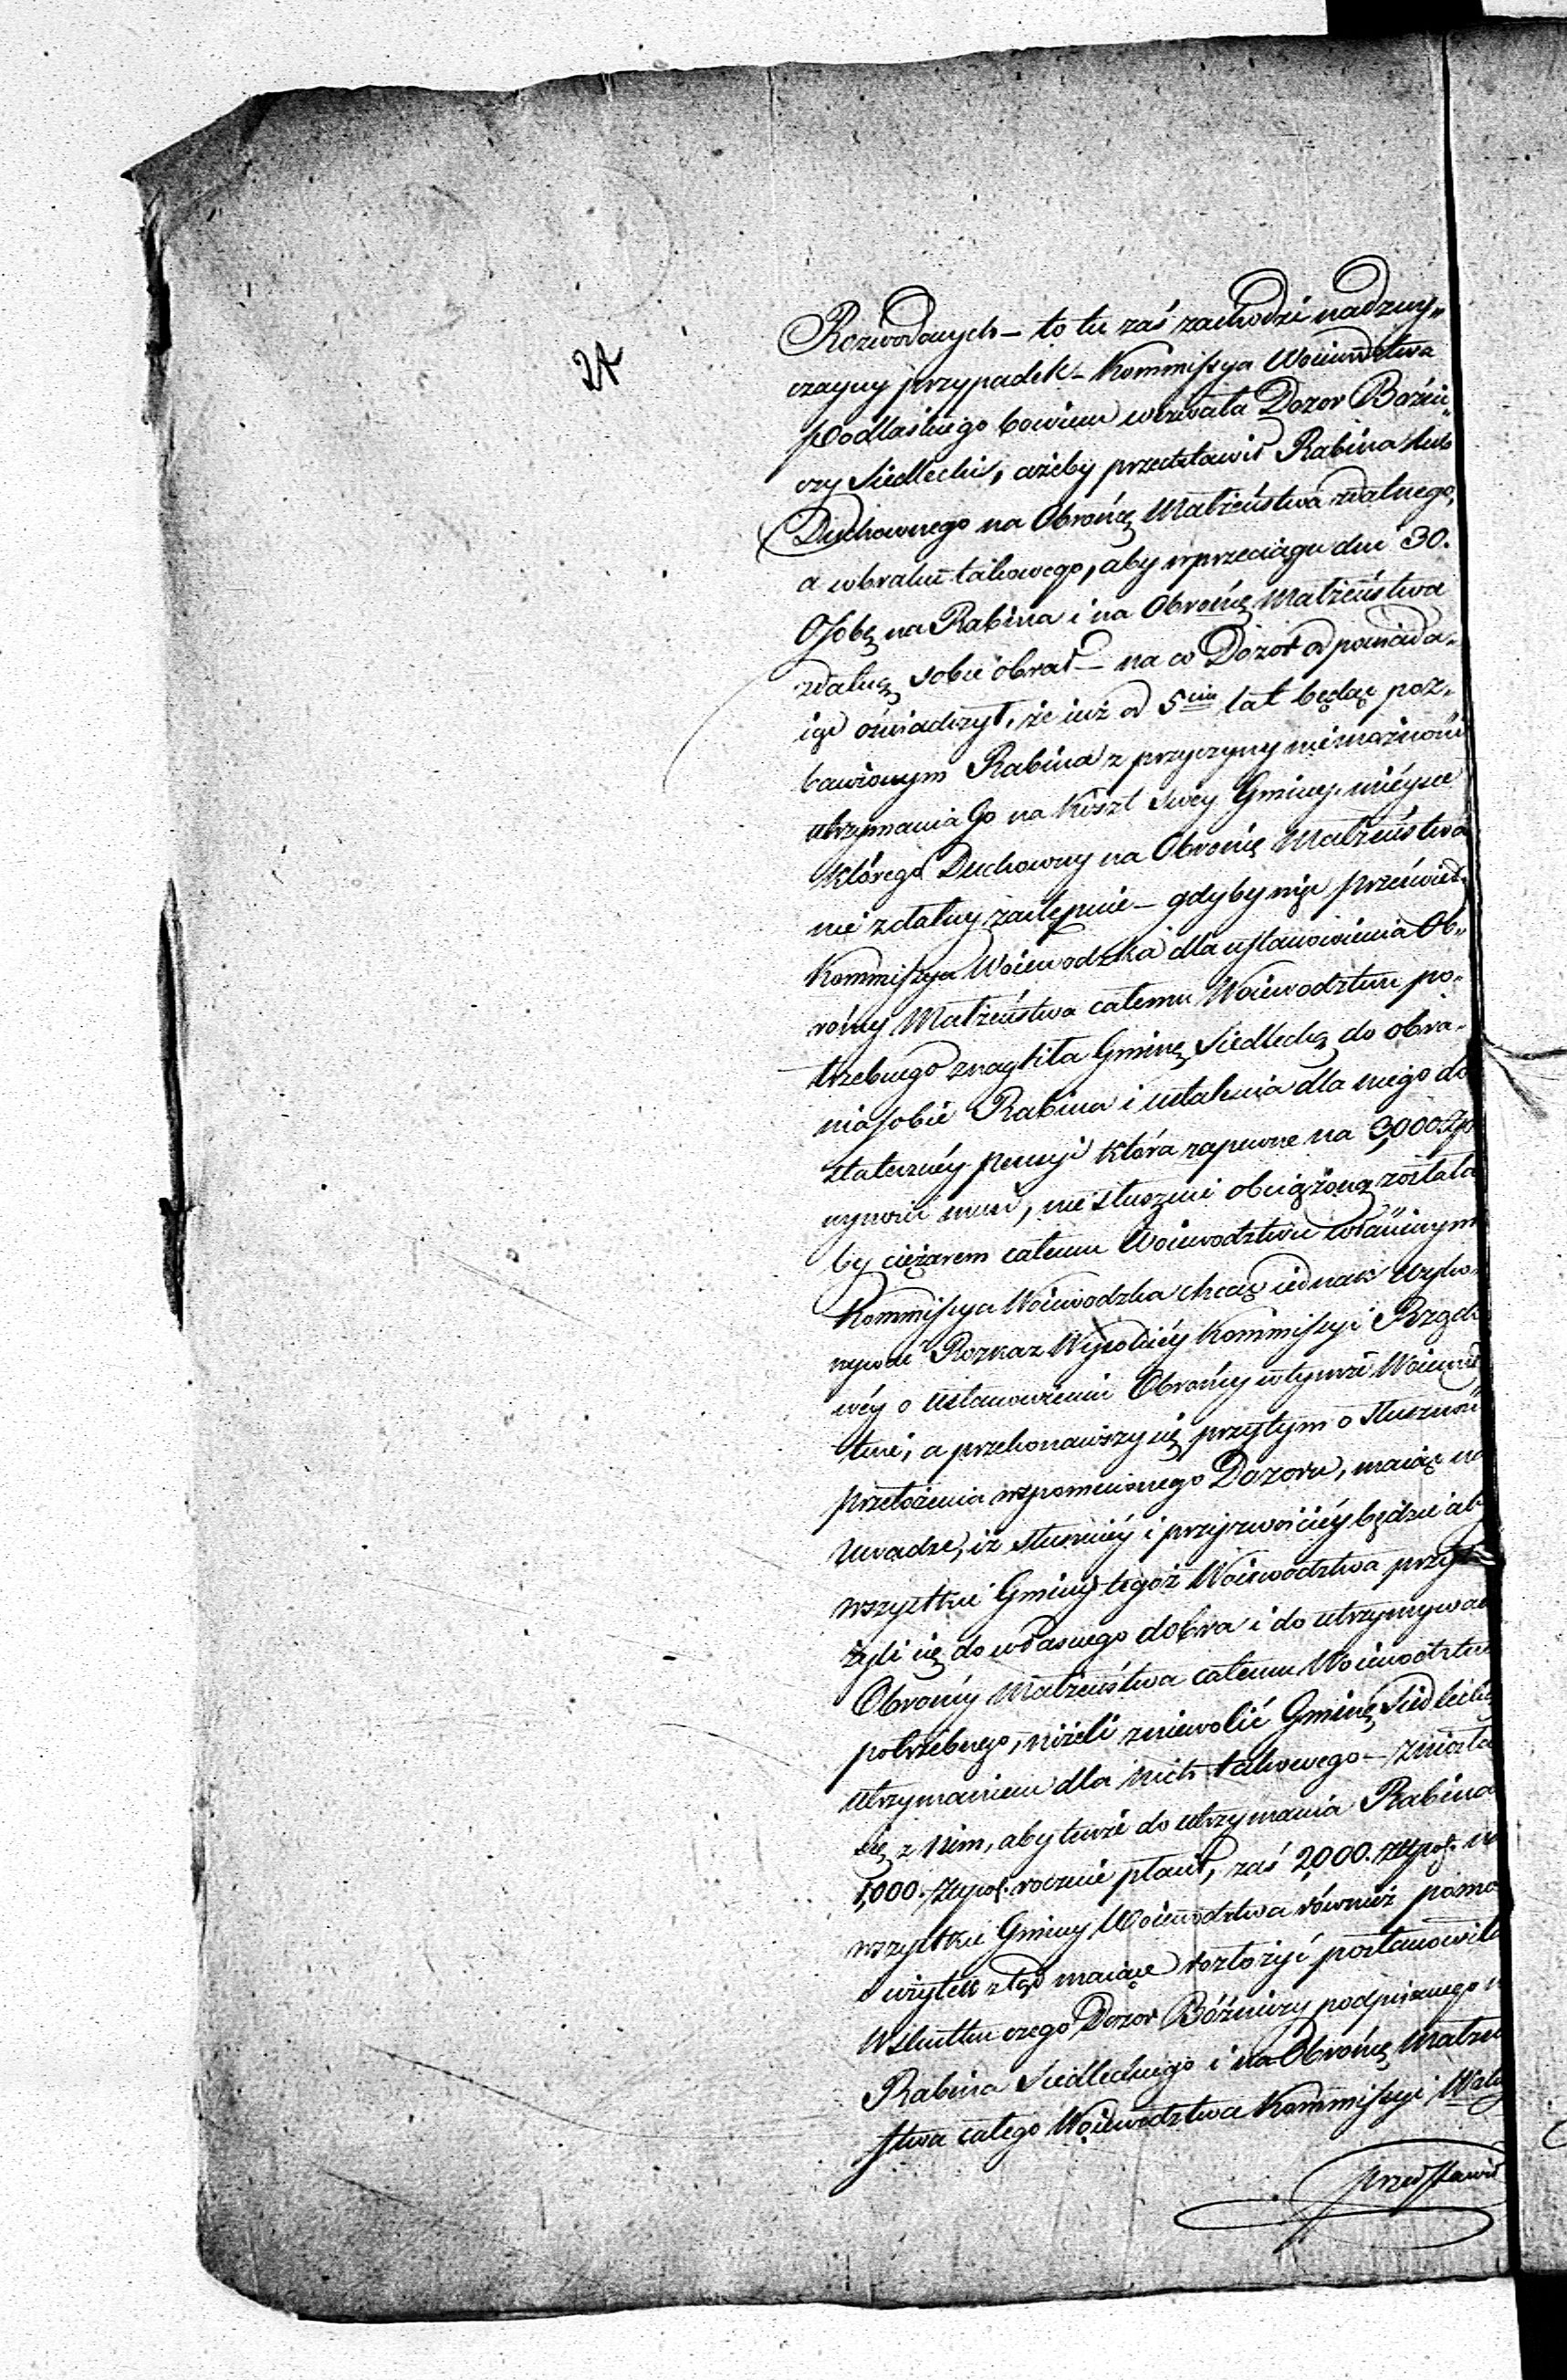 24
Rozwodowych – to tu zaś zachodzi nadzwy„
czayny przypadek – Kommissya Woiewodztwa
Podlaskiego bowiem wezwała Dozor Bóźni„
czy Siedlecki, ażeby przedstawił Rabina lub
Duchownego na Obrońcę Małżeństwa zdatnego,
a w braku takowego, aby w przeciągu dni 30.
Osobę na Rabina i na Obrońcę Małżeństwa
zdatną sobie obrał – na co Dozor odpowiada„
iąc oświadczył, że iuż od 5ciu lat będąc poz„
bawionym Rabina z przyczyny niemożności
utrzymania Go na Koszt swey Gminy, mieysce
którego Duchowny na Obrońcę Małżeństwa
nie zdatny zastępuie – gdyby więc prześwied.
Kommissya Woiewodzka dla ustanowienia Ob„
rońcy Małżeństwa całemu Woiewodztwu po„
trzebnego znagliła Gminę Siedlecką do obra„
nia sobie Rabina i ustalenia dla niego do
stateczney pensyi która zapewne na 3,000 Złp
wynosić musi, niesłusznie obciążoną została
by ciężarem całemu Woiewodztwu właściwym
Kommissya Woiewodzka chcąc iednak wyko„
nywać Rozkaz Wysokiéy Kommissyi Rządo
wéy o ustanowieniu Obrońcy w tymże Woiewódz
twie, a przekonawszy się przytym o słuszności
przełożenia wspomnionego Dozoru, maiąc na
uwadze, iż słuszniéy i przyzwoiciéy będzie aby
wszystkie Gminy tegoż Woiewodztwa przyło
żyli się do własnego dobra i do utrzymywan
Obrońcy Małżeństwa całemu Woiewodztwu
potrzebnego, niżeli zniewolić Gminę Siedlecką
utrzymaniem dla nich takowego – zniosła
się z nim, aby tenże do utrzymania Rabina
1,000. Złłpol. rocznie płacił, zaś 2,000. Złłpol. na
wszystkie Gminy Woiewodztwa również pomo
i użytek ztąd maiące rozłożyć postanowiła
W skutku czego Dozor Bóźniczy podpisanego n
Rabina Siedleckiego i na Obrońcę Małżeń
stwa całego Woiewodztwa Kommissyi Wdz
przedstawił